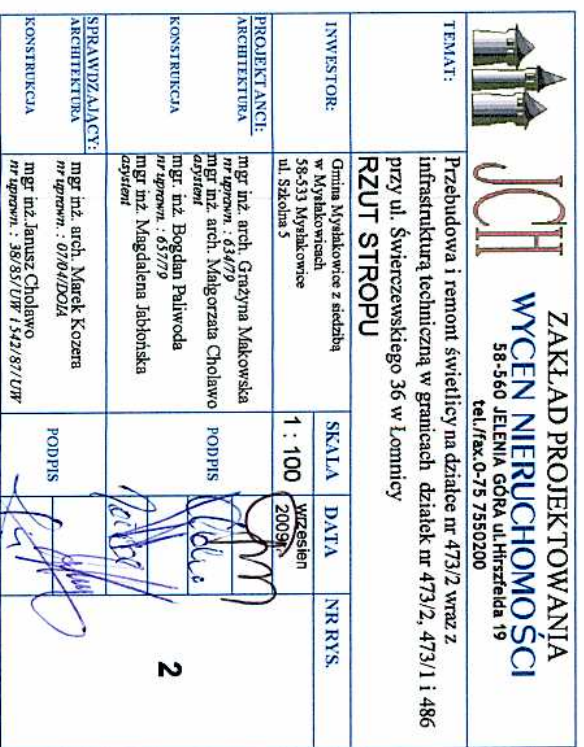 JCH
ZAKŁAD PROJEKTOWANIA
WYCEN NIERUCHOMOŚCI
58-560 JELENIA GÓRA ul.Hirszfelda 19
tel./fax.0-75 7550200
TEMAT:
Przebudowa i remont świetlicy na działce nr 473/2 wraz z
infrastrukturą techniczną w granicach działek nr 473/2, 473/1 i 486
przy ul. Świerczewskiego 36 w Łomnicy
RZUT STROPU
INWESTOR:
Gmina Mysłakowice z siedzibą
w Mysłakowicach
58-533 Mysłakowice
ul. Szkolna 5
SKALA
1 : 100
DATA
wrzesien
2009r.
NR RYS.
2
PROJEKTANCI:
ARCHITEKTURA
mgr inż. arch. Grażyna Makowska
nr uprawn. : 634/79
mgr inż. arch. Małgorzata Cholawo
asystent
KONSTRUKCJA
mgr. inż. Bogdan Paliwoda
nr uprawn. : 657/79
mgr inż. Magdalena Jabłońska
asystent
PODPIS
SPRAWDZAJĄCY:
ARCHITEKTURA
mgr inż. arch. Marek Kozera
nr uprawn. : 07/04/DOIA
KONSTRUKCJA
mgr inż. Janusz Cholawo
nr uprawn. : 38/85/UW i 542/87/UW
PODPIS